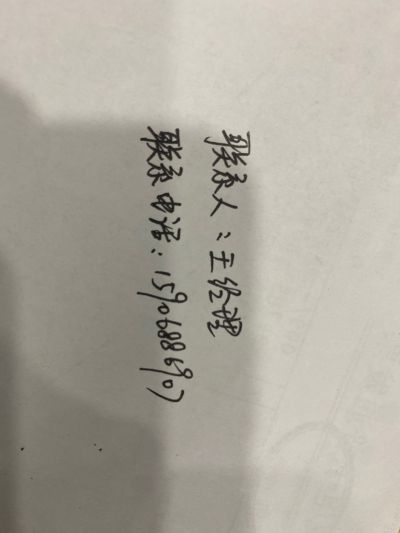 联系人：王经理
联系电话：15906886907